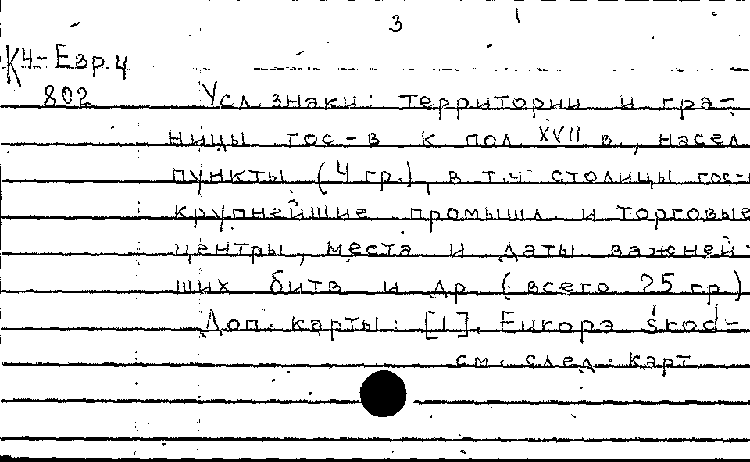 3
К4-Евр.4
802
Усл. знаки: территории и гра-
ницы гос-в к пол. XVII в., насел.
пункты (4 гр.), в т.ч. столицы гос-в
крупнейшие промышл. и торговые
центры, места и даты важней-
ших битв и др. (всего 25 гр.)
Доп. карты: [1].
см. след. карт.